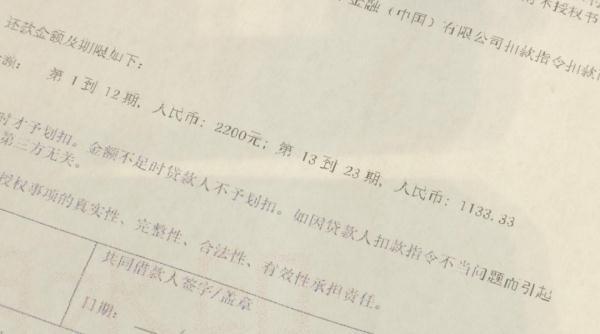 授权书
金融（中国）有限公司扣款指令扣款
还款金额及期限如下：
额： 第 1 到 12 期，人民币：2200元；第 13 到 23 期，人民币：1133.33
时才予划扣。金额不足时贷款人不予划扣。如因贷款人扣款指令不当问题而引起
第三方无关。
授权事项的真实性、完整性、合法性、有效性承担责任。
共同借款人签字/盖章
日期：